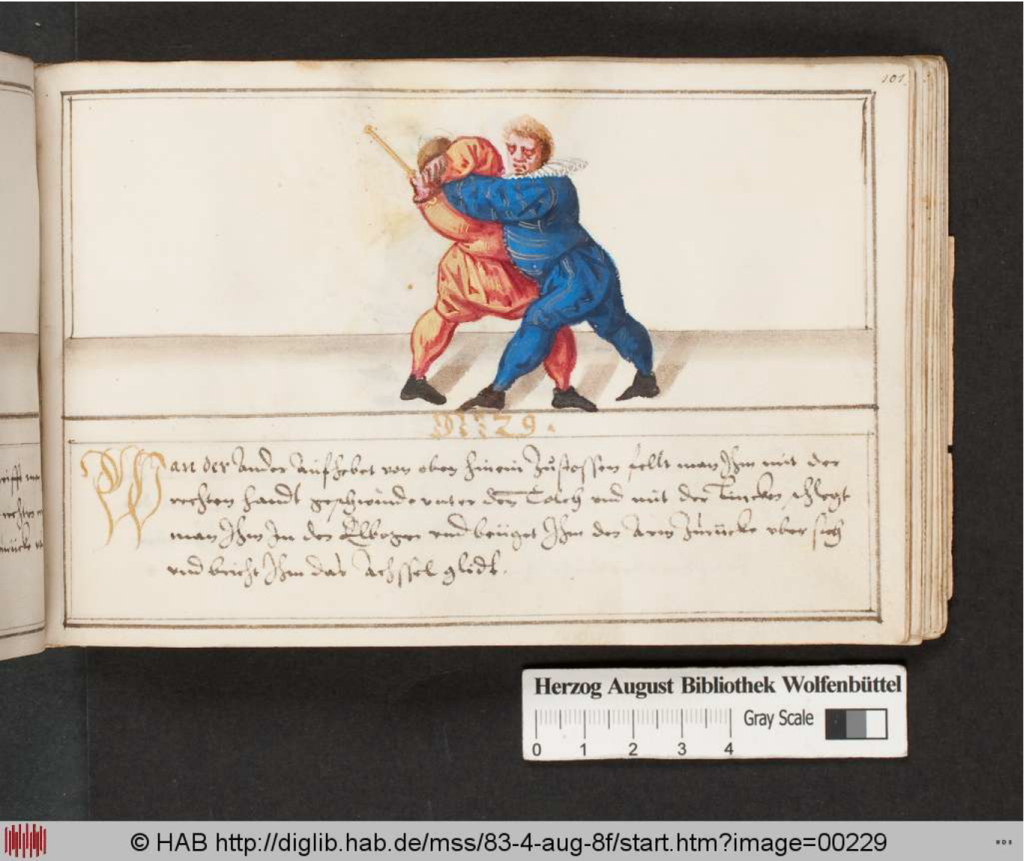 101.
N 129.
Wan der Ander Aufhebet von oben hinein Zustossen fellt man Ihm mit der
rechten handt geschwinde unter den Tolch vnd mit der Lincken schlegt
man Ihm In den Elbogen vnd beüget Ihm den Arm Zurücke vber sich
vnd bricht Ihm das Achssel glidt.
Herzog August Bibliothek Wolfenbüttel
Gray Scale
0 1 2 3 4
© HAB http://diglib.hab.de/mss/83-4-aug-8f/start.htm?image=00229